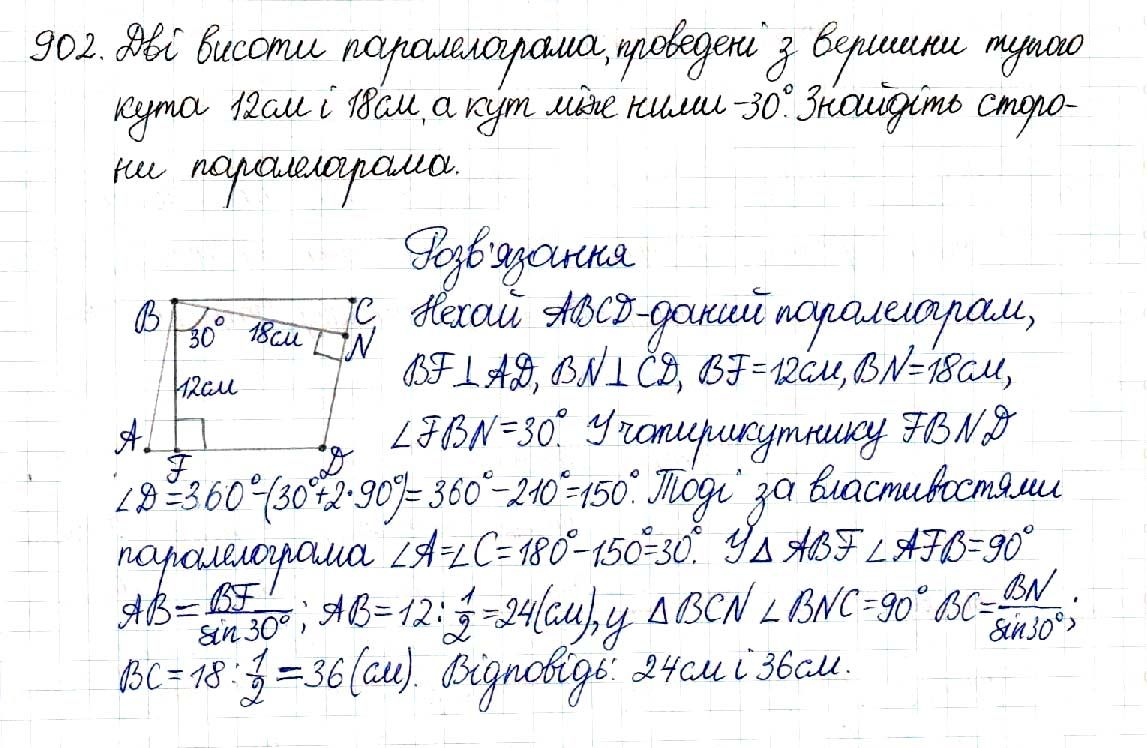 902. Дві висоти паралелограма, проведені з вершини тупого
кута 12см і 18см, а кут між ними -30°. Знайдіть сторо-
ни паралелограма.
Розв'язання
B
30°
18см
C
N
12см
A
F
D
Нехай ABCD-даний паралелограм,
BF⊥AD, BN⊥CD, BF=12см, BN=18см,
∠FBN=30°. У чотирикутнику FBND
∠D=360°-(30°+2·90°)=360°-210°=150°. Тоді за властивостями
паралелограма ∠A=∠C=180°-150°=30°. У△ABF ∠AFB=90°
AB=BF/sin30°; AB=12:1/2=24(см), у △BCN ∠BNC=90° BC=BN/sin30°;
BC=18:1/2=36(см). Відповідь: 24см і 36см.